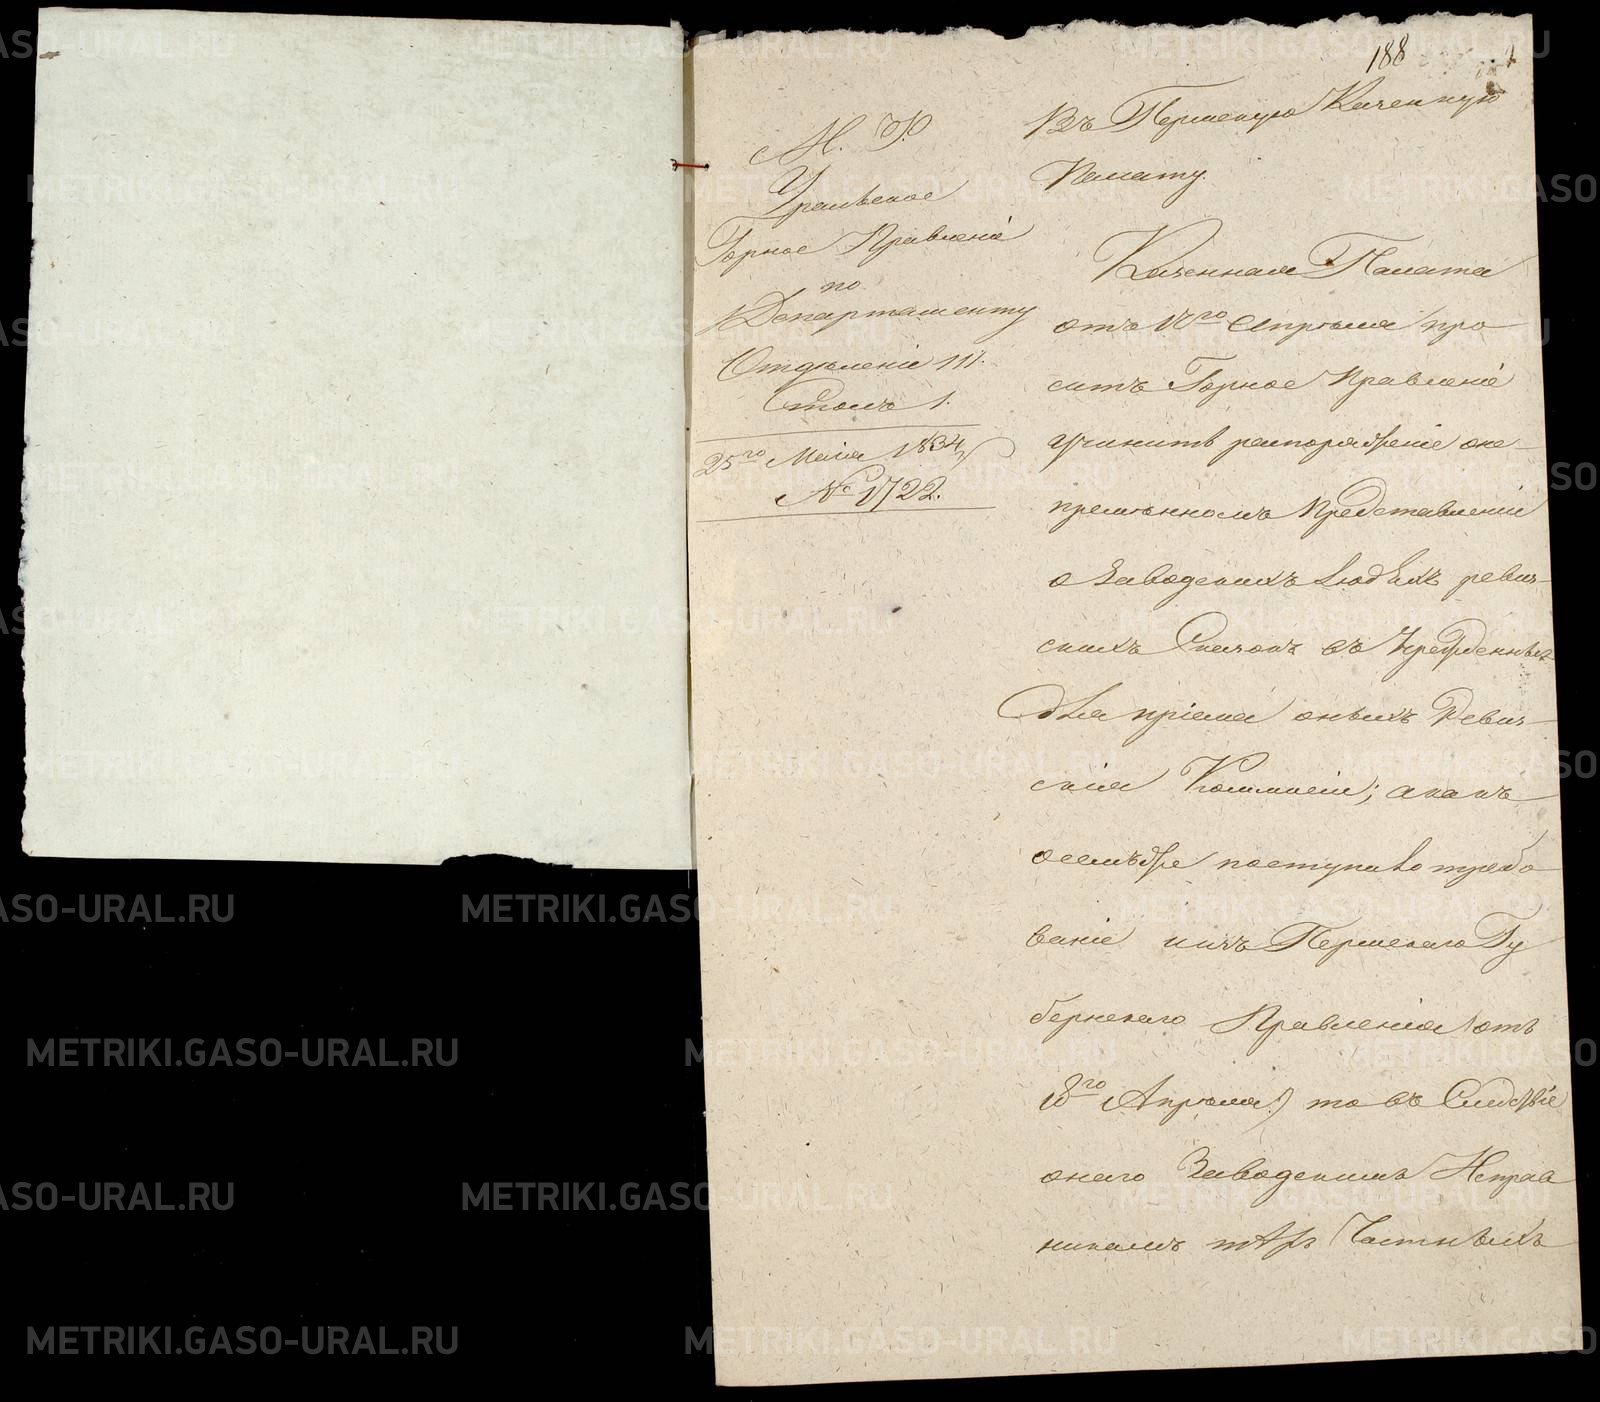 188
М. Ф.
Уральское
Горное Правленiе
по
Департаменту
Отделенiе III.
Столъ 1.
25го Маiя 1834
№ 1722.
Въ Пермскую Казенную
Палату.
Казенная Палата
отъ 18го Апреля про
ситъ Горное Правленiе
учинить распоряженiе оне-
премѣнномъ Представленiи
о Заводскихъ Людяхъ ревиз-
скихъ Сказокъ въ Учрежденныя
для прiема оныхъ Ревиз-
скiя Коммисiи; а какъ
осемъ же поступило требо
ванiе изъ Пермскаго Гу
бернскаго Правленiя (отъ
18го Апреля) то въ Следствiе
онаго Заводскимъ Исправ
никамъ Частныхъ
METRIKI.GASO-URAL.RU